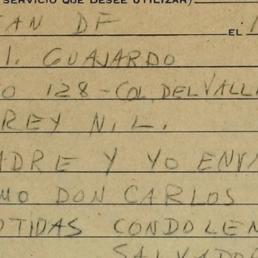 SERVICIO QUE DESEE UTILIZAR)
TAN DF EL
I. GUAJARDO
O 128-COL DEL VALL
REY N.L.
ADRE Y YO ENVI
MO DON CARLOS
OTIDAS CONDOLEN
SALVADOR